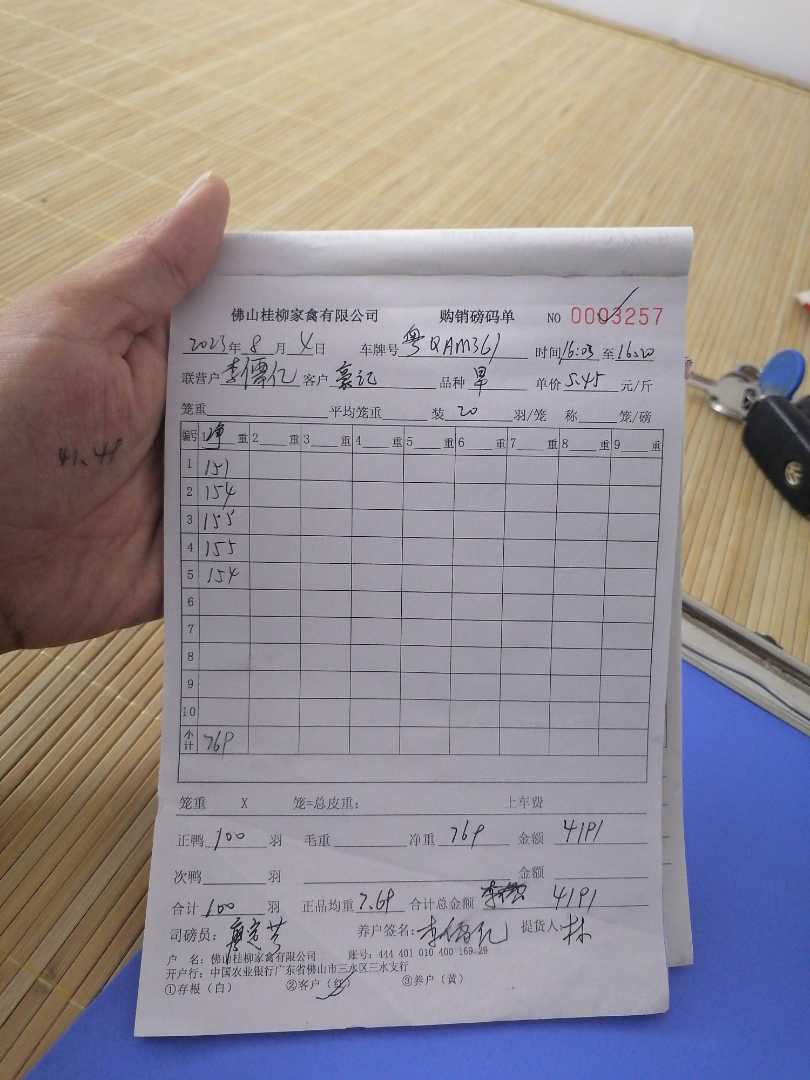 佛山桂柳家禽有限公司 购销磅码单 NO 0003257
2023年8月4日 车牌号粤QAM361 时间16:03至16:20
联营户 客户豪记 品种 单价5.45元/斤
笼重 平均笼重 装20羽/笼 称 笼/磅
编号 1净重 2 重 3 重 4 重 5 重 6 重 7 重 8 重 9 重
1 151
2 154
3 155
4 155
5 154
6
7
8
9
10
小计 769
笼重 X 笼=总皮重: 上车费
正鸭100羽 毛重 净重769 金额4191
次鸭 羽 金额
合计100羽 正品均重7.69 合计总金额 4191
司磅员: 养户签名: 提货人:林
户 名: 佛山桂柳家禽有限公司 账号: 444 401 010 400 169 29
开户行: 中国农业银行广东省佛山市三水区三水支行
①存根(白) ②客户(红) ③养户(黄)
41.49